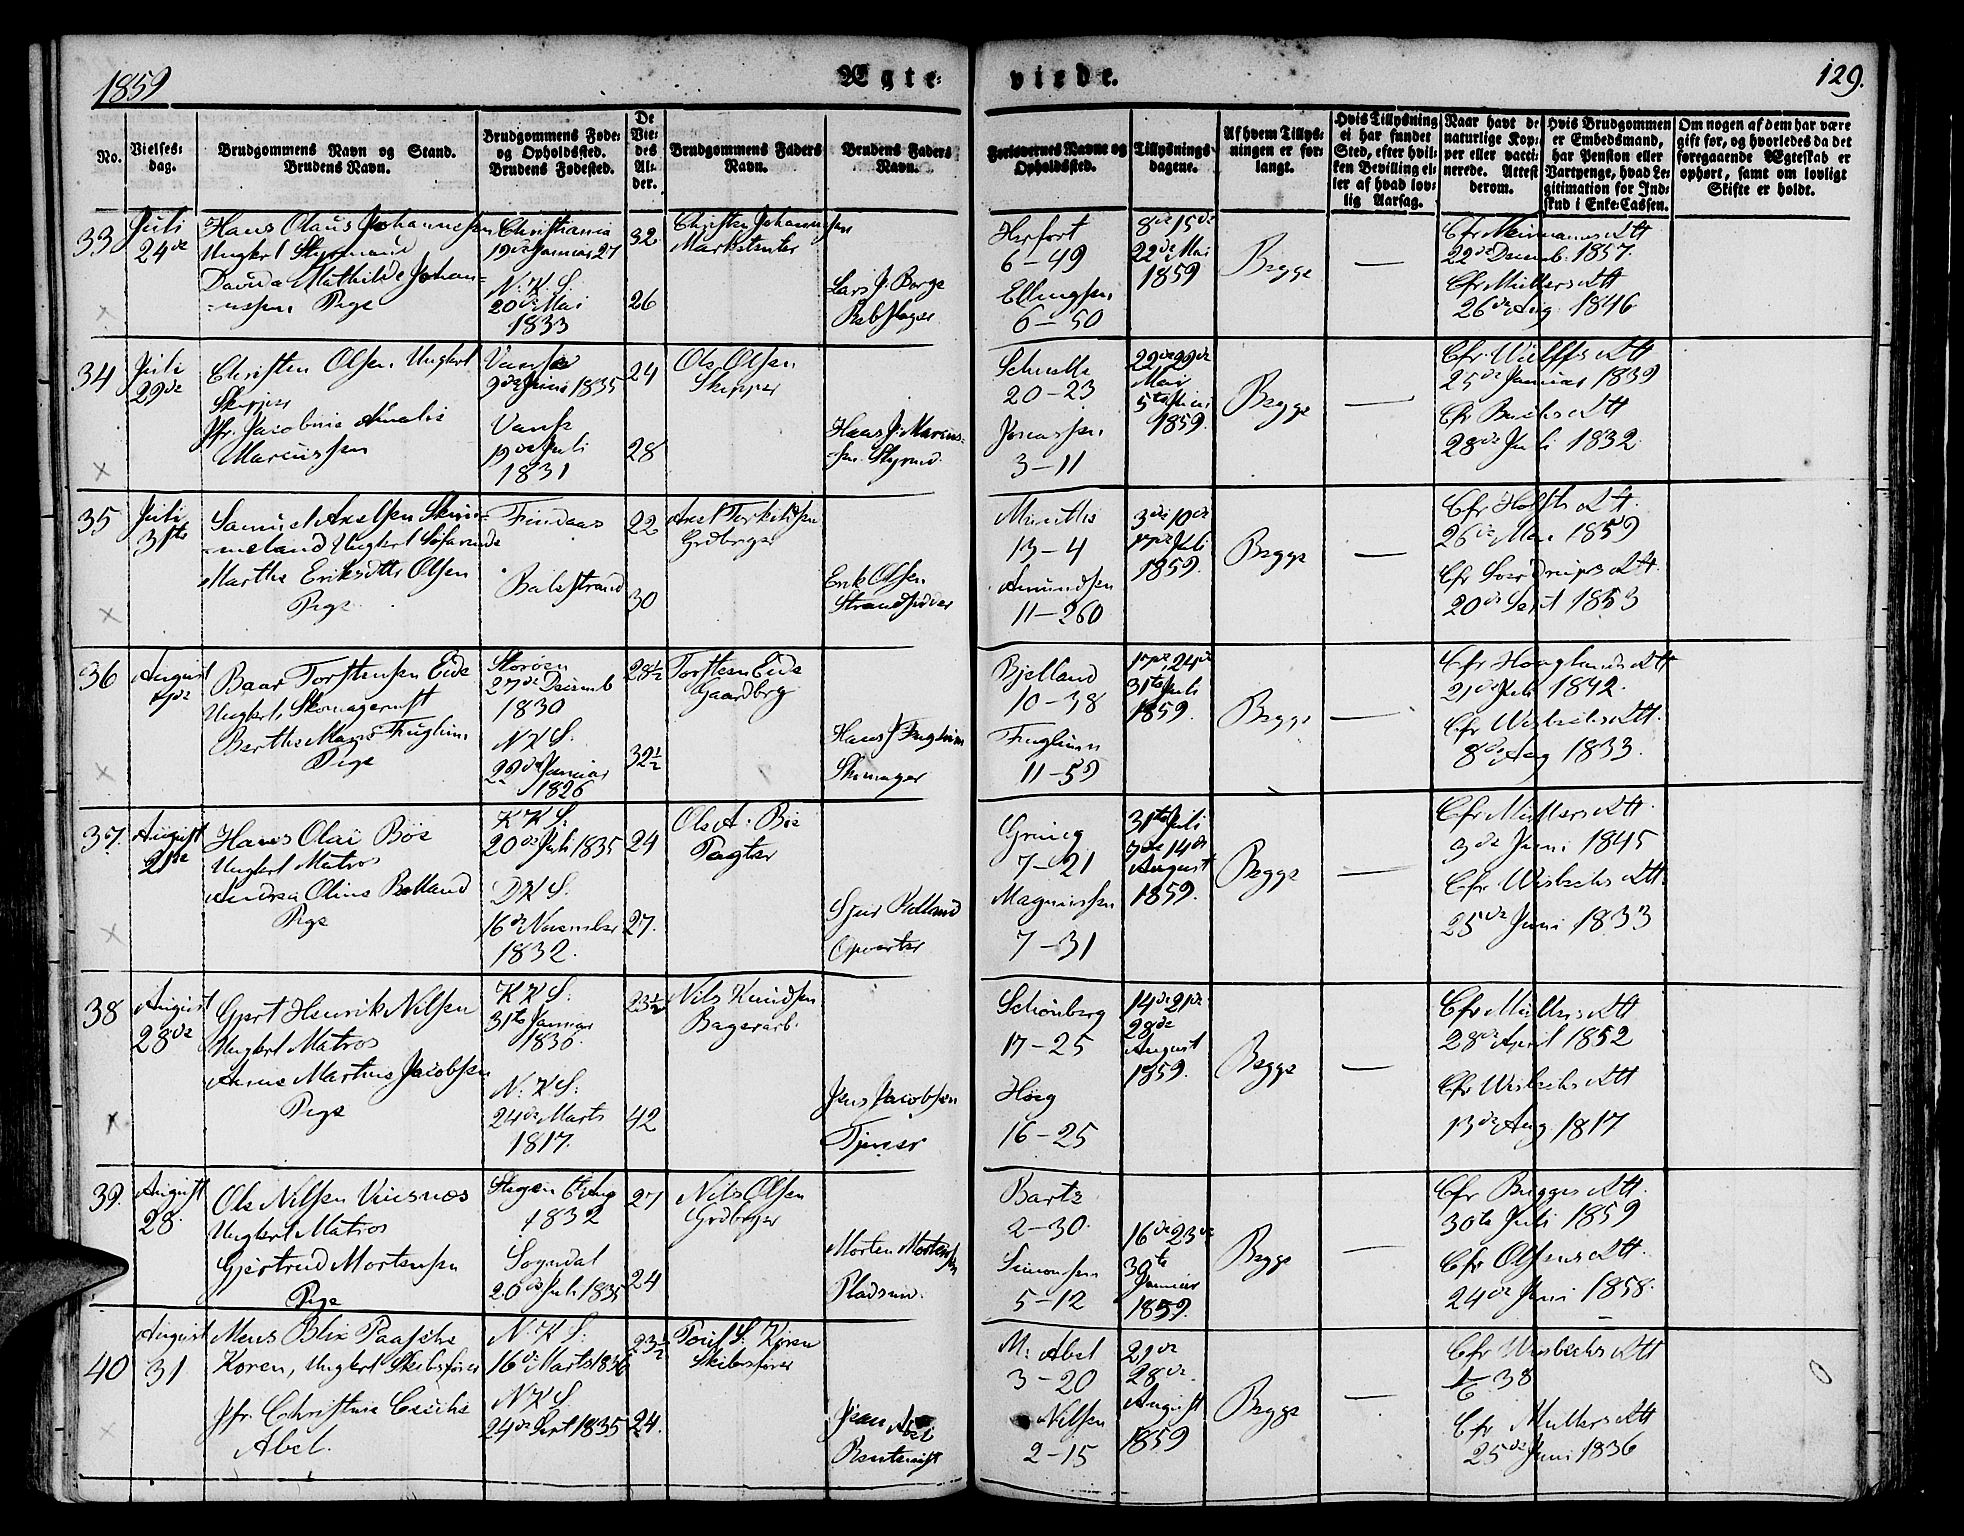 1859
Ægte-
viede.
129.
No.
Vielses-
dag.
Brudgommens Navn og Stand.
Brudens Navn.
Brudgommens Føde-
og Opholdssted.
Brudens Fødested.
De
Vie-
des
Al-
der.
Brudgommens Faders
Navn.
Brudens Faders
Navn.
Forlovernes Navne og
Opholdssted.
Tillysnings
dagene.
Af hvem Tillys-
ningen er for-
langt.
Hvis Tillysning
ei har fundet
Sted, efter hvil-
ken Bevilling el-
ler af hvad lov-
lig Aarsag.
Naar havt de
naturlige Kop-
per eller vacci-
nerede. Attest
derom.
Hvis Brudgommen
er Embedsmand,
har Pension eller
Vartpenge, hvad Le-
gitimation for Ind-
skud i Enke-Cassen.
Om nogen af dem har være
gift før, og hvorledes da det
foregaaende Ægteskab er
ophørt, samt om lovligt
Skifte er holdt.
33
Juli
24de
Hans Olaus Johannessen
Ungkarl Styrmand
Davida Mathilde Johan-
nessen Pige
Christiania
19de Januar 27
N. K. S.
20de Mai
1833
32
26
Christen Johannessen
Marketenter
Lars J. Borge
Rebslager
Herfort
6-49
Ellingsen
6-50
8de 15de
22de Mai
1859
Begge
Cfr Neumanns Att
22de Decemb. 1857.
Cfr Müllers Att
26de Aug 1846
34
Juli
29de
Christen Olsen Ungkarl
Skipper
Jfr. Jacobine Amalie
Marcussen
Vanse
9de Juni 1835
Vanse
19de Juli
1831
24
28
Ole Olsen
Skipper
Hans J. Marcus-
sen Styrmd.
20-23
3-11
22de 29de
Mai
5te Juni
1859.
Begge
25de Januar 1839
Cfr Buchs Att
28de Juli 1832.
35
Juli
31te
Samuel Axelsen Skim-
meland Ungkarl Søfarende
Marthe Eriksdtr Olsen
Pige
Findaas
Balestrand
22
30
Axel Torkildsen
Grdbrger
Erik Olsen
Strandsidder
Munthe
13-4
Amundsen
11-260
3de 10de
17de Juli
1859.
Begge
Cfr Holsts Att.
26de Mai 1859
Cfr Sverdrups Att.
20de Sept 1853
36
August
Baar Torstensen Eide
Ungkarl, Skomagersvst
Berthe Marie Fuglum
Pige
Storøen
27de Decemb
1830
N K S.
29de Januar
1826
28½
32½
Torsten Eide
Gaardbrg
Hans J Fuglum
Skomager
Bjelland
10-38
Fuglum
11-59
17de, 24de
31te Juli
1859.
Begge
Cfr Hooglands Att
21de Juli 1842.
Cfr Wesbechs Att.
8de Aug 1833.
37.
August
21de
Hans Olai Bøe
Ungkarl Matros
Andrea Oline Kelland
Pige
K K S.
20de Juli 1835
D K S.
16de November
1832.
24
27.
Ole A. Bøe
Pagter
Sjur Kelland
Opvarter
Grieg
7-21
Magnussen
7-31
31te Juli
7de 14de
August
1859.
Begge
Cfr Müllers Att.
3de Juni 1845
Cfr Wesbechs Att.
25de Juni 1833
38
August
28de
Gjert Henrik Nilsen
Ungkarl Matros
Anne Marthe Jacobsen
Pige
K K S.
31te Januar
1836.
N. K S.
24de Marts
1817.
23½
42
Nils Knudsen
Bagerarb.
Jens Jacobsen
Tjener
Schønberg
17-25
Høeg
16-25
14de 21de
28de
August
1859.
Begge
Cfr Müllers Att
28de April 1852
Cfr Wesbechs Att
13de Aug 1817
39.
August
28.
Ole Nilsen Viesnæs
Ungkarl Matros
Gjertrud Mortensen
Pige
1832
Sogndal
20de Juli 1835
27
24
Nils Olsen
Grdbrger
Morten Mortensen
Pladsmd.
Bartz
2-30.
Simonsen
5-12
16de 23de
30te
Januar
1859.
Begge
Cfr Brigges Att.
30te Juli 1859
Cfr Olsens Att.
24de Juni 1858.
40
August
31
Mens Blix Paasche
Koren, Ungkarl Skibsfører
Jfr. Christine Cecilie
Abel.
N. K S.
16de Marts 1836
N K S.
24de Sept 1835
23½
24.
Joul S. Koren
Skibsfører
Jean Abel
M. Abel
3-20
Nilsen
2-15
21de
28de
August
1859
Begge
Cfr Wesbechs Att
38
Cfr Müllers Att
25de Juni 1836